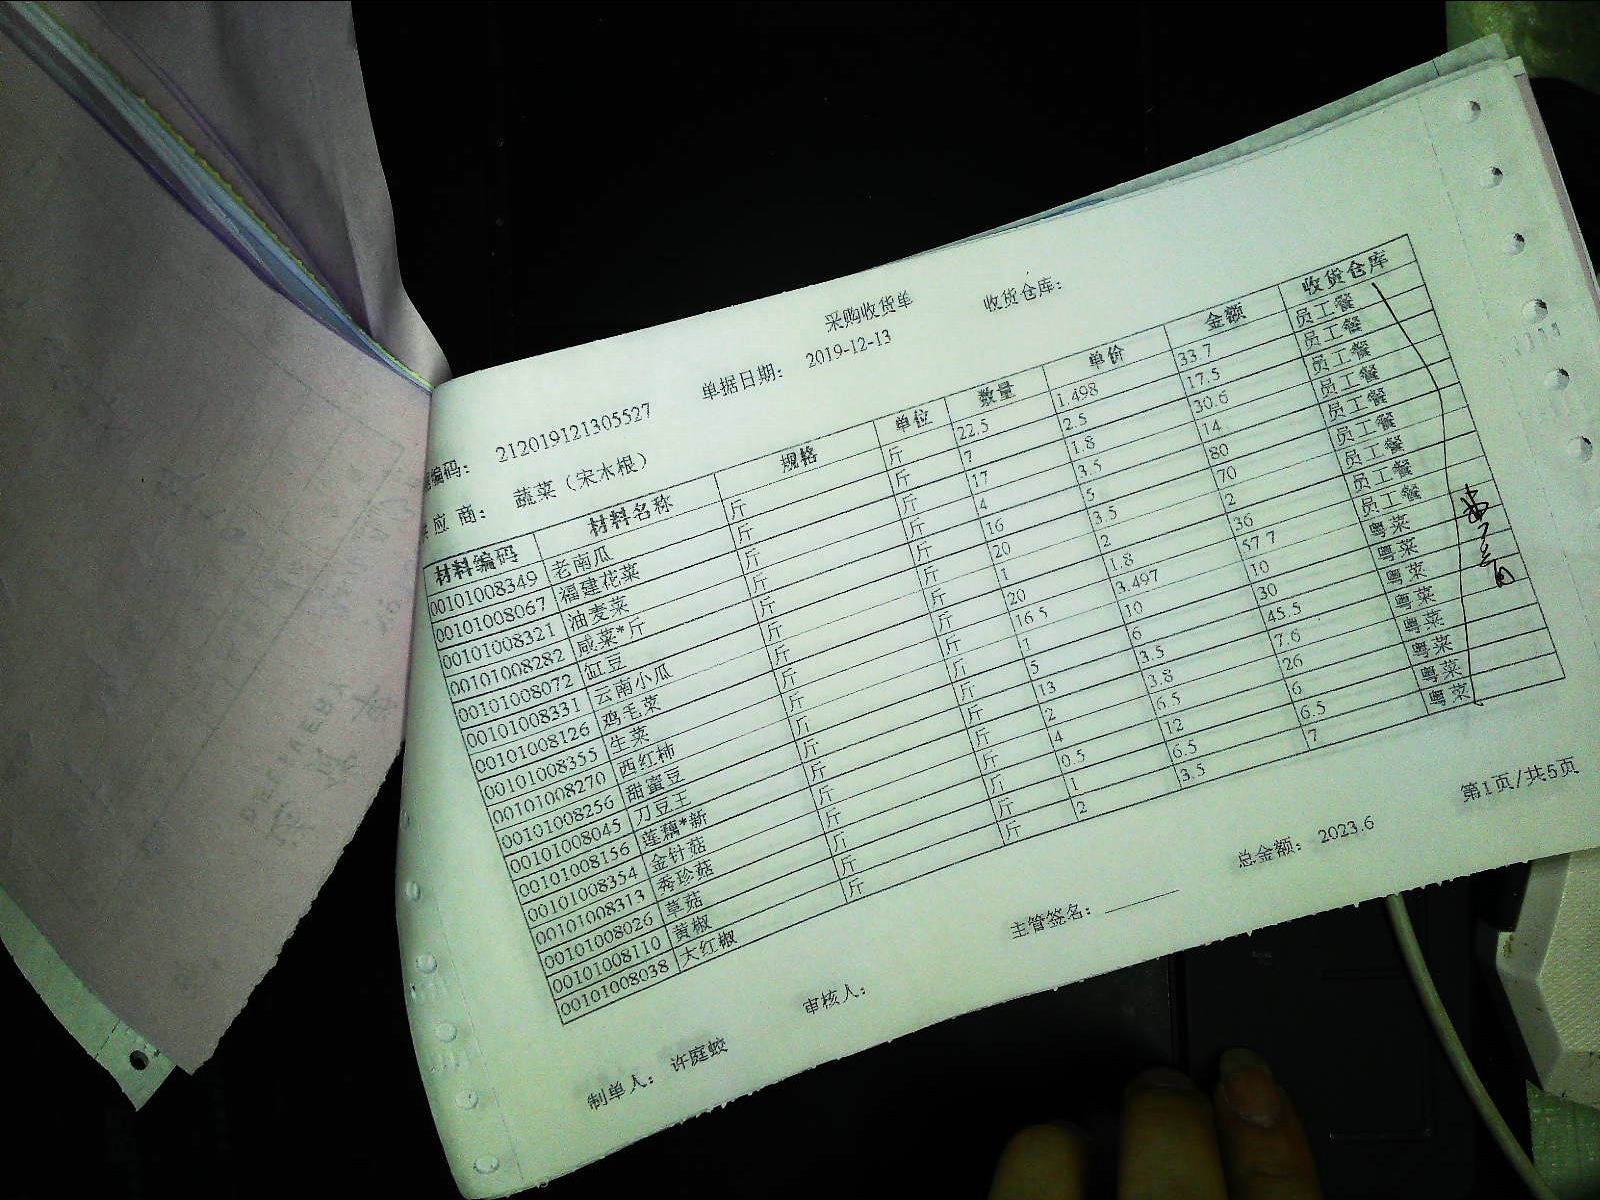 采购收货单
编码: 212019121305527 单据日期: 2019-12-13 收货仓库:
应商: 蔬菜（宋木根）
材料编码 材料名称 规格 单位 数量 单价 金额 收货仓库
00101008349 老南瓜 斤 斤 22.5 1.498 33.7 员工餐
00101008067 福建花菜 斤 斤 7 2.5 17.5 员工餐
00101008321 油麦菜 斤 斤 17 1.8 30.6 员工餐
00101008282 咸菜*斤 斤 斤 4 3.5 14 员工餐
00101008072 缸豆 斤 斤 16 5 80 员工餐
00101008331 云南小瓜 斤 斤 20 3.5 70 员工餐
00101008126 鸡毛菜 斤 斤 1 2 2 员工餐
00101008355 生菜 斤 斤 20 1.8 36 员工餐
00101008270 西红柿 斤 斤 16.5 3.497 57.7 员工餐
00101008256 甜蜜豆 斤 斤 1 10 10 粤菜
00101008045 刀豆王 斤 斤 5 6 30 粤菜
00101008156 莲藕*新 斤 斤 13 3.5 45.5 粤菜
00101008354 金针菇 斤 斤 2 3.8 7.6 粤菜
00101008313 秀珍菇 斤 斤 4 6.5 26 粤菜
00101008026 草菇 斤 斤 0.5 12 6 粤菜
00101008110 黄椒 斤 斤 1 6.5 6.5 粤菜
00101008038 大红椒 斤 斤 2 3.5 7 粤菜
制单人: 许庭蛟 审核人: 主管签名: 总金额: 2023.6 第1页/共5页